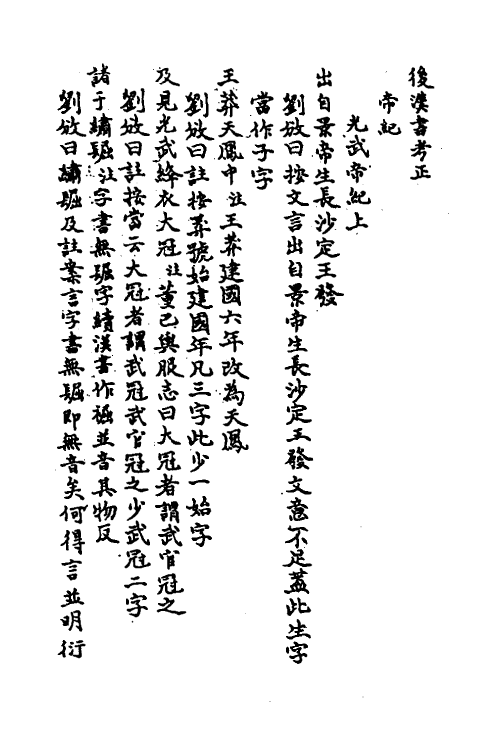 後漢書考正
帝紀
光武帝紀上
出自景帝生長沙定王發
劉攽曰按文言出自景帝生長沙定王發文意不足蓋此生字
當作子字
王莽天鳳中注王莽建國六年改為天鳳
劉攽曰註按莽號始建國年凡三字此少一始字
及見光武絳衣大冠注董巴輿服志曰大冠者謂武官冠之
劉攽曰註按當云大冠者謂武冠武官冠之少武冠二字
諸于繡镼注字書無镼字續漢書作𧝎並音其物反
劉攽曰繡镼及註案言字書無镼即無音矣何得言並明衍